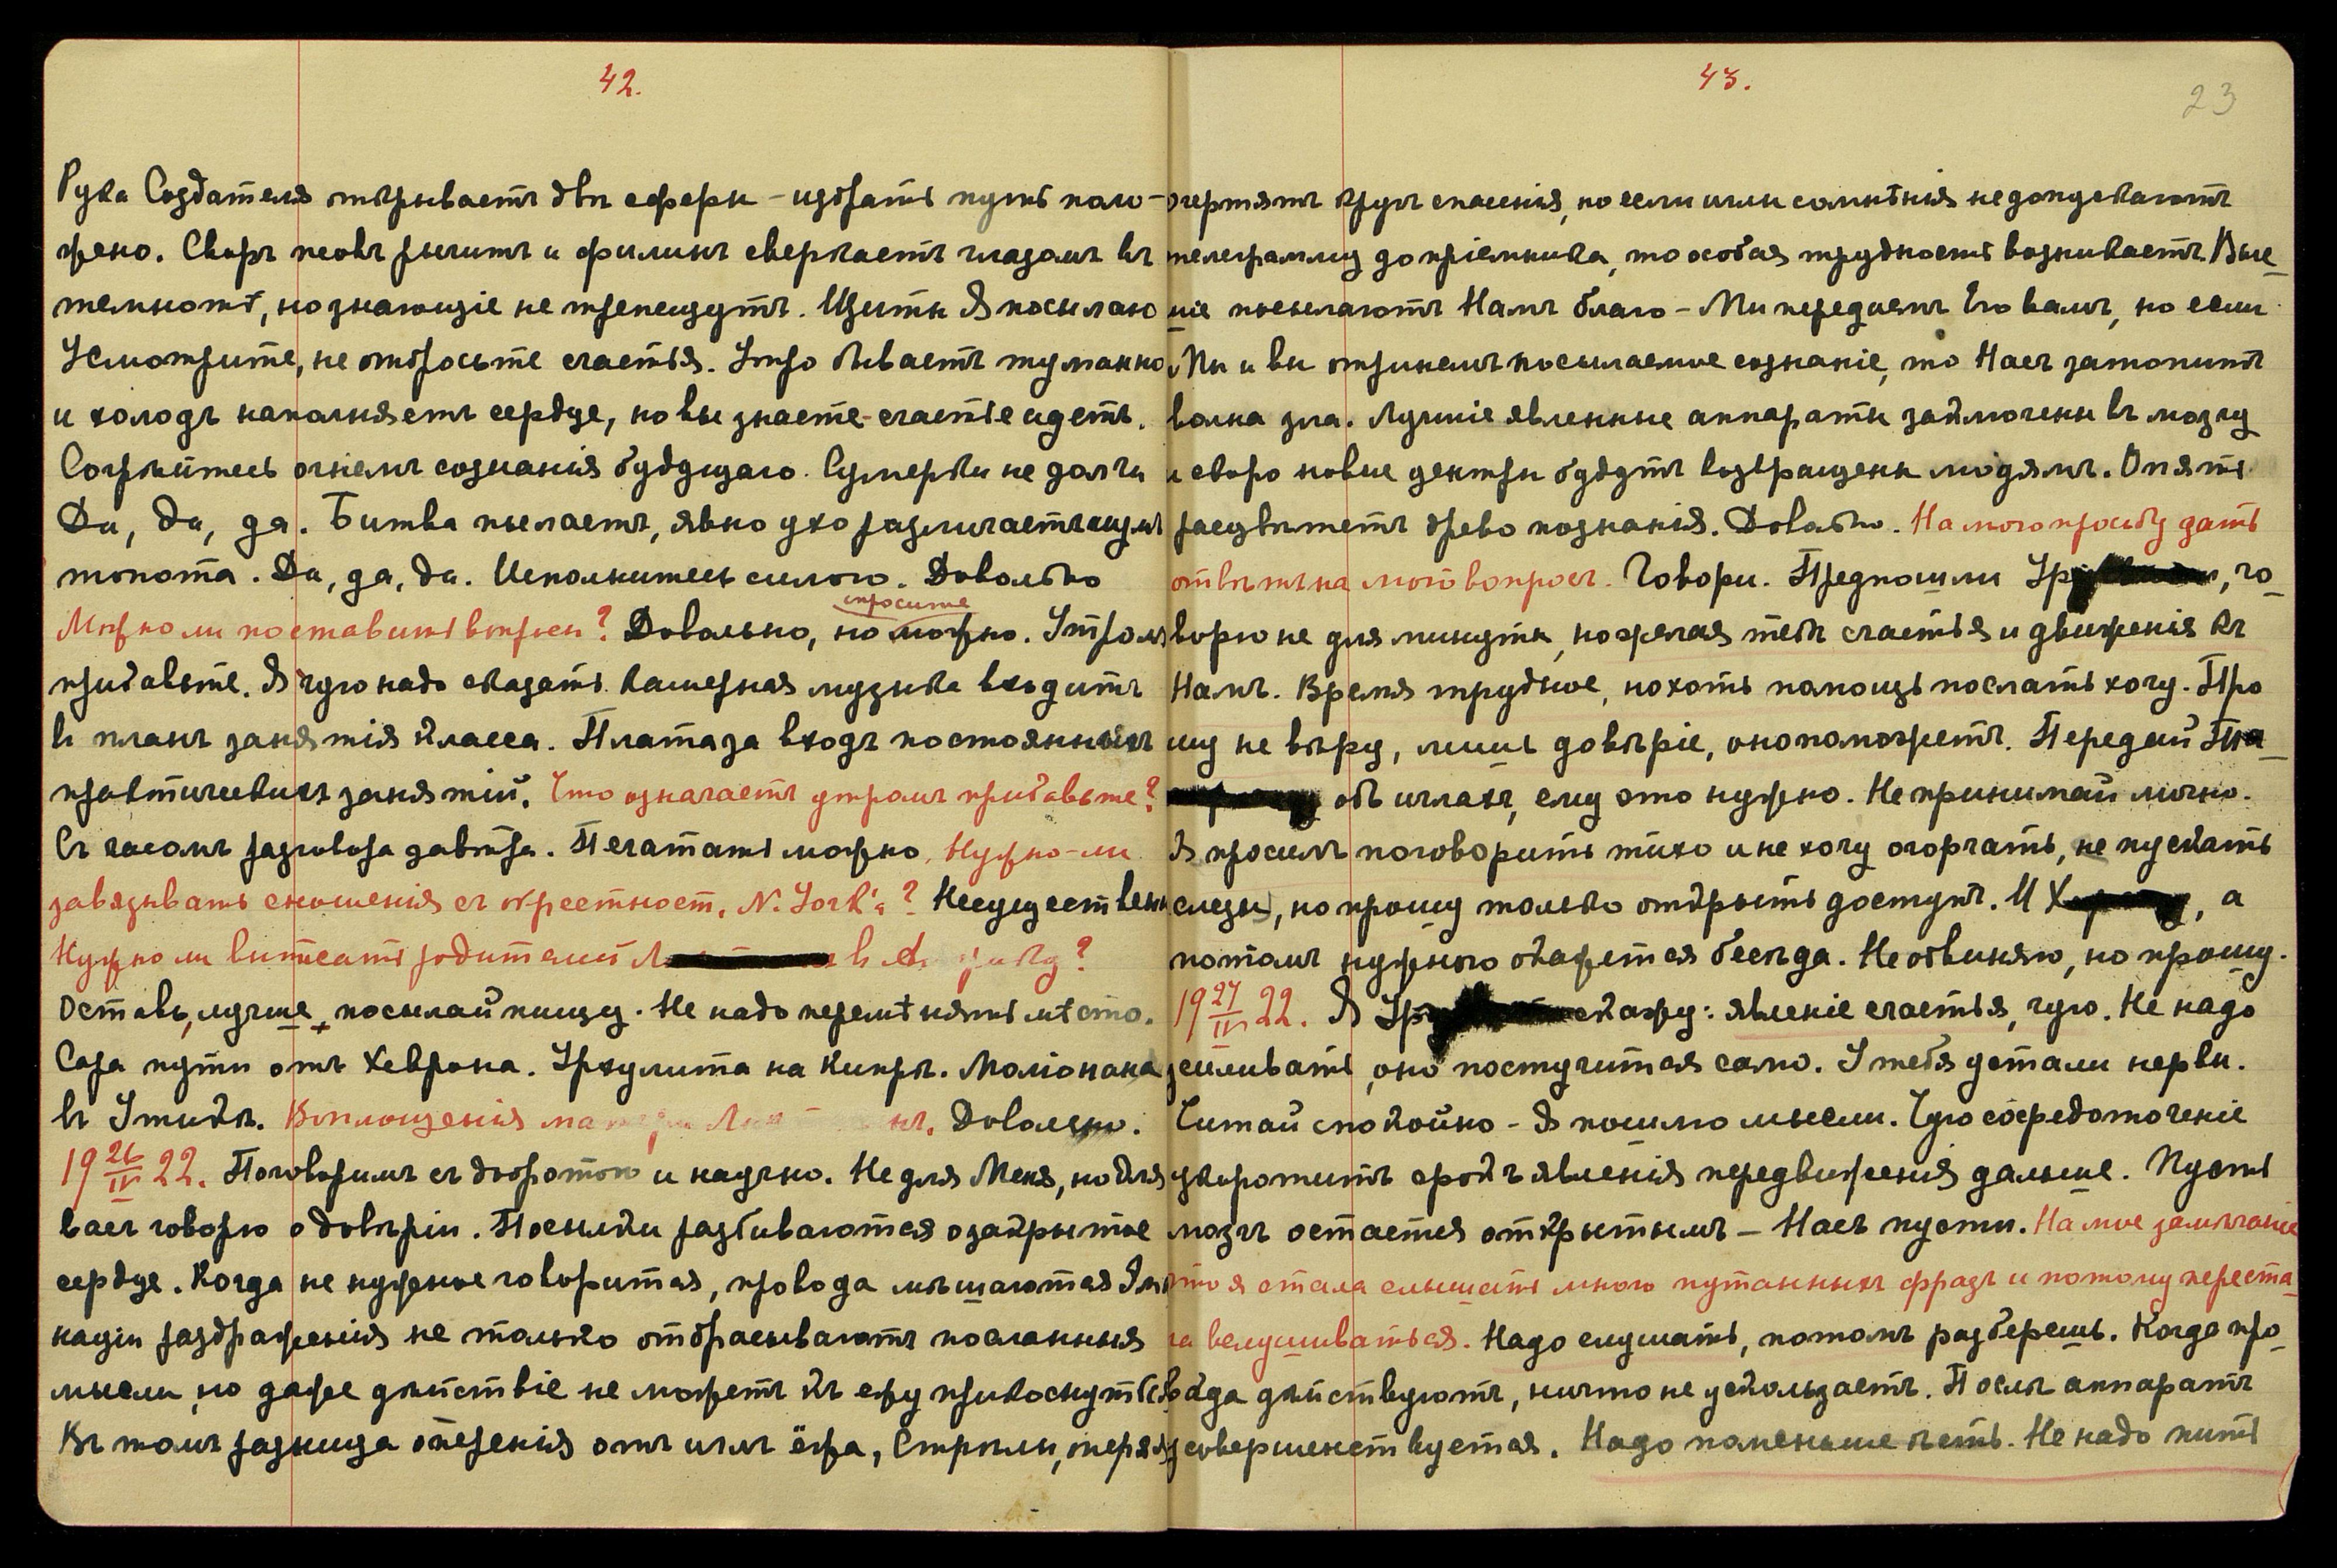 42.
Рука Создателя открываетъ двѣ сферы – избрать путь поло-
жено. Скоръ песокъ рычитъ и филинъ сверкаетъ глазомъ въ
темнотѣ, но знающіе не трепещутъ. Щиты Я посылаю
Усмотрите, не отбросьте счастья. Утро бываетъ туманно
и холодъ наполняетъ сердце, но вы знаете – счастье идетъ.
Согрѣйтесь огнемъ сознанія будущаго. Сумерки не долги
Да, да, да. Битва пылаетъ, явно ухо различаетъ шумъ
топота. Да, да, да. Исполнитесь силою. Довольно
Можно ли поставить вопросы? Довольно, но спросите можно. Утромъ
прибавьте. Я чую надо сказать камерная музыка входитъ
въ планъ занятія класса. Плата за входъ постоянныхъ
практическихъ занятій. Что означаетъ утромъ прибавьте?
Съ часомъ разговора завтра. Печатать можно. Нужно-ли
завязывать сношенія съ окрестност. N. York'а? Несущественно
Нужно ли выписать родителей въ
Оставь, лучше посылай пищу. Не надо перемѣнять мѣсто.
Сара пути отъ Хеврона. на Кипрѣ.
въ Воплощенія Довольно.
19 26/IV 22. Поговоримъ съ добротою и научно. Не для Меня, но для
васъ говорю о довѣріи. Посылки разбиваются о закрытое
сердце. Когда не нужное говорится, провода мѣшаются Эма-
націи раздраженія не только отбрасываютъ посланныя
мысли, но даже дѣйствіе не можетъ къ ежу прикоснуться
Въ томъ разница оперенія отъ иглъ ёжа, Стрѣлы, перья
43.
23
очертятъ кругъ спасенія, но если иглы сомнѣнія не допускаютъ
телеграмму до пріемника, то особая трудность возникаетъ. Выс-
шіе посылаютъ Намъ благо – Мы передаемъ Его вамъ, но если
Мы и вы отринемъ посылаемое сознаніе, то Насъ затопитъ
волна зла. Лучшіе явленные аппараты заключены въ мозгу
и скоро новые центры будутъ возвращены людямъ. Опять
расцвѣтетъ древо познанія. Довольно. На мою просьбу дать
отвѣтъ на мой вопросъ. Говори. Предпошли , го-
ворю не для минуты, но желая тебѣ счастья и движенія къ
Намъ. Время трудное, но хоть помощь послать хочу. Про
шу не вѣру, лишь довѣріе, оно поможетъ. Передай
объ иглахъ, ему это нужно. Не принимай лично.
Я просилъ поговорить тихо и не хочу огорчать, не пускать
слезы, но прошу только открыть доступъ. И Х , а
потомъ нужною окажется бесѣда. Не обвиняю, но прошу.
19 27/IV 22. Я скажу: явленіе счастья, чую. Не надо
усиливать, оно постучится само. У тебя устали нервы.
Читай спокойно – Я пошлю мысли. Чую сосредоточеніе
укоротитъ срокъ явленія передвиженія дальше. Пусть
мозгъ остается открытымъ – Насъ пусти. На мое замѣчаніе
что я стала слышать много путанныхъ фразъ и потому переста-
ла вслушиваться. Надо слушать, потомъ разберешь. Когда про-
вода дѣйствуютъ, ничто не ускользаетъ. Послѣ аппаратъ
усовершенствуется. Надо поменьше ѣсть. Не надо пить